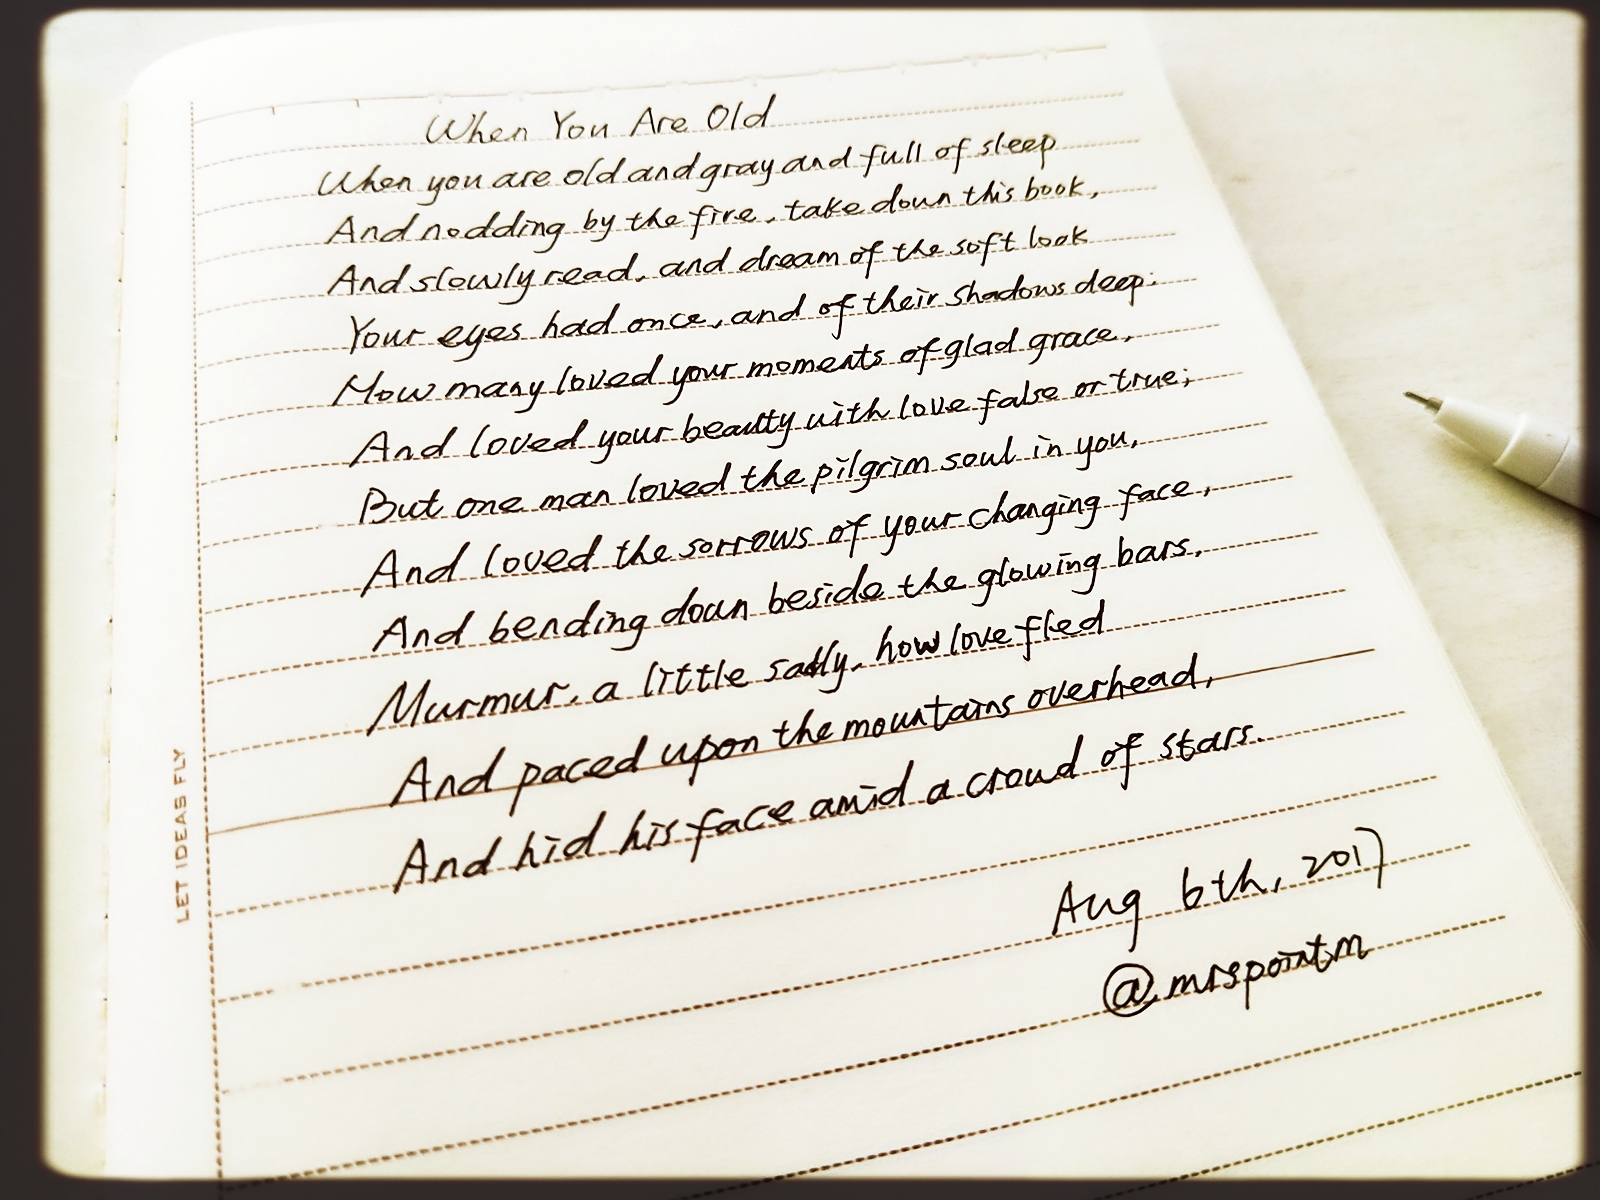 When You Are Old
When you are old and gray and full of sleep
And nodding by the fire, take down this book,
And slowly read, and dream of the soft look
Your eyes had once, and of their shadows deep.
How many loved your moments of glad grace,
And loved your beautty with love false or true;
But one man loved the pilgrim soul in you,
And loved the sorrows of your changing face,
And bending down beside the glowing bars,
Murmur, a little sadly, how love fled
And paced upon the mountains overhead,
And hid his face amid a crowd of stars.
Aug 6th, 2017
@mrspointm
LET IDEAS FLY